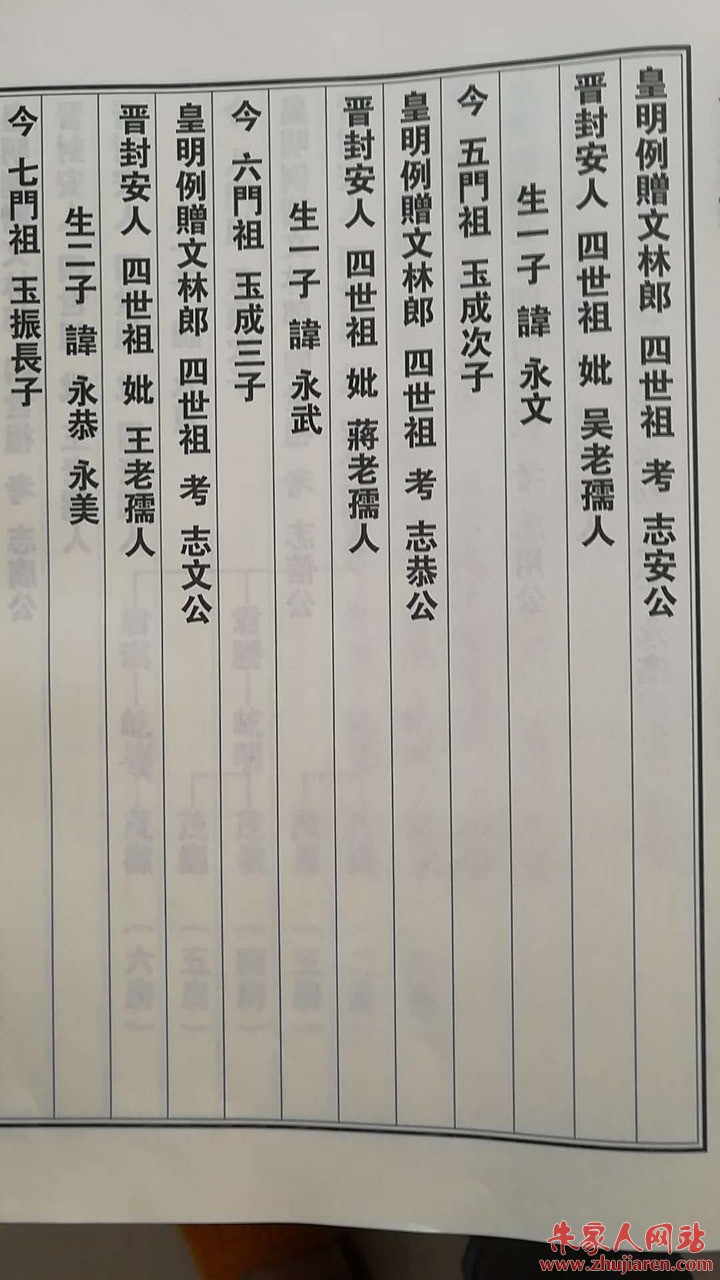 皇明例贈文林郎 四世祖 考 志安公
晋封安人 四世祖 妣 吴老孺人
生一子 諱 永文
今 五門祖 玉成次子
皇明例贈文林郎 四世祖 考 志恭公
晋封安人 四世祖 妣 蔣老孺人
生一子 諱 永武
今 六門祖 玉成三子
皇明例贈文林郎 四世祖 考 志文公
晋封安人 四世祖 妣 王老孺人
生二子 諱 永恭 永美
今 七門祖 玉振長子
朱家人网站
www.zhujiaren.com